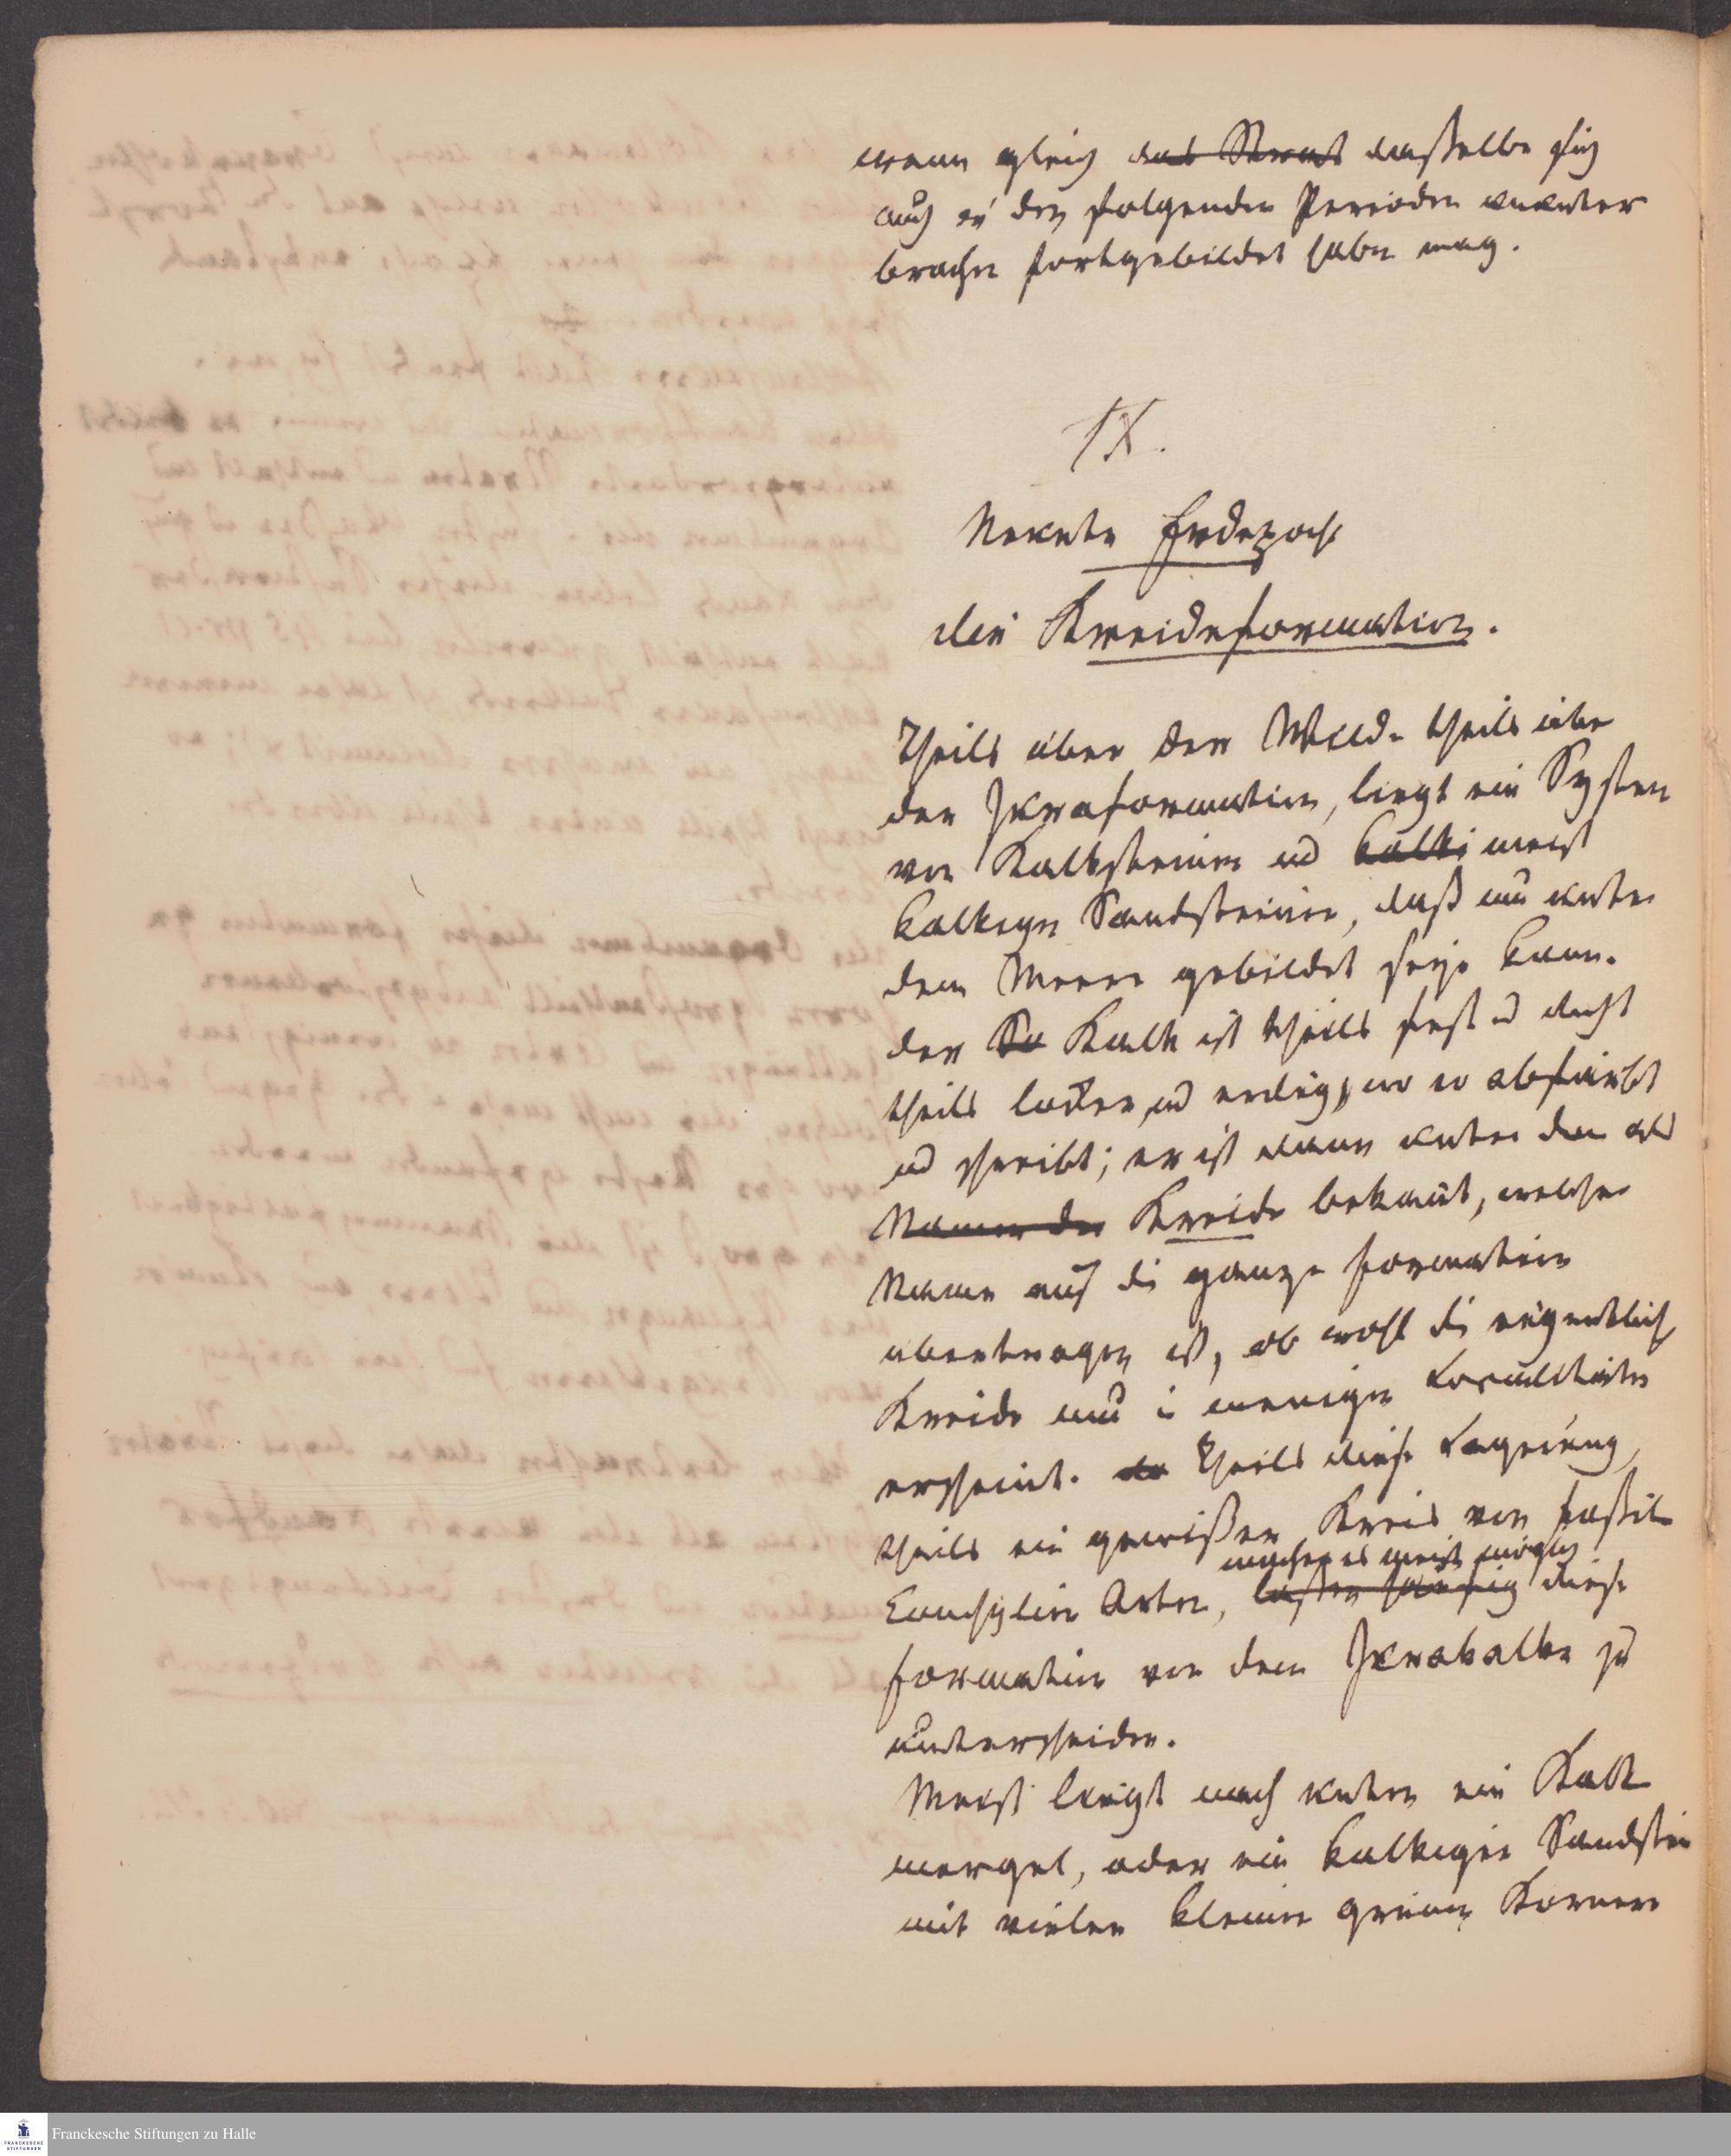 wenn gleich das Strat dasselbe sich
auch in den folgenden Perioden ununter
brochen fortgebildet haben mag.
IX.
Neunte Erdepoche
die Kreideformation.
Theils über der Weald- theils über
der Juraformation, liegt ein System
von Kalksteinen und kalki meist
kalkigen Sandsteinen, daß nur unter
dem Meere gebildet seyn kann.
der Sa Kalk ist theils fest und dicht
theils locker, und erdig, wo er abfärbt
und schreibt; er ist dann unter dem als
Namen der Kreide bekannt, welcher
Name auf die ganze Formation
übertragen ist, ob wohl die eigentliche
Kreide nur in wenigen Localitäten
erscheint. da Theils diese Lagerung,
theils ein gewißer Kreis von fossilen
machen es meist möglich
Conchylien Arten, laßen häufig diese
Formation von dem Jurakalke zu
unterscheiden.
Meist liegt nach unten ein Kalk
mergel, oder ein kalkiger Sandstein
mit vielen kleinen grünen Körnern
FRANCKESCHE STIFTUNGEN
Franckesche Stiftungen zu Halle